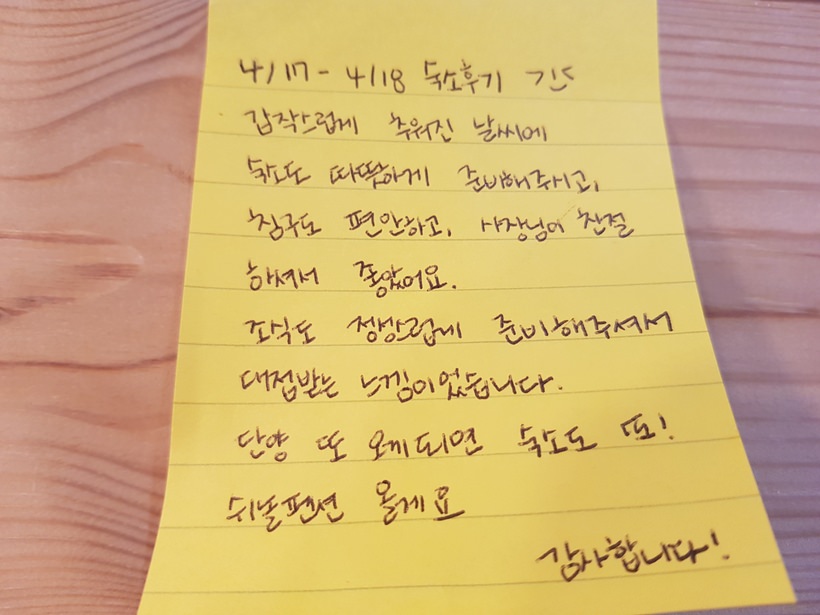 4/17 - 4/18 숙소후기
갑작스럽게 추워진 날씨에
숙소도 따뜻하게 준비해주시고,
침구도 편안하고, 사장님이 친절
하셔서 좋았어요.
조식도 정성스럽게 준비해주셔서
대접받는 느낌이었습니다.
단양 또 오게되면 숙소도 또!
쉬날펜션 올게요
감사합니다!